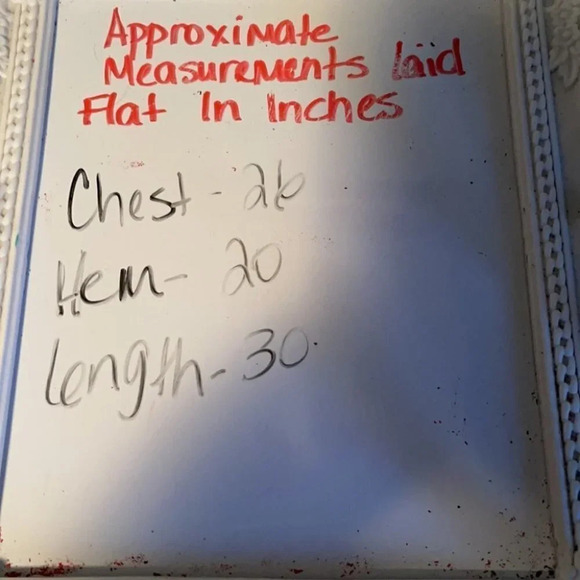 Approximate
Measurements laid
Flat In Inches
Chest - 26
Hem - 20
Length - 30